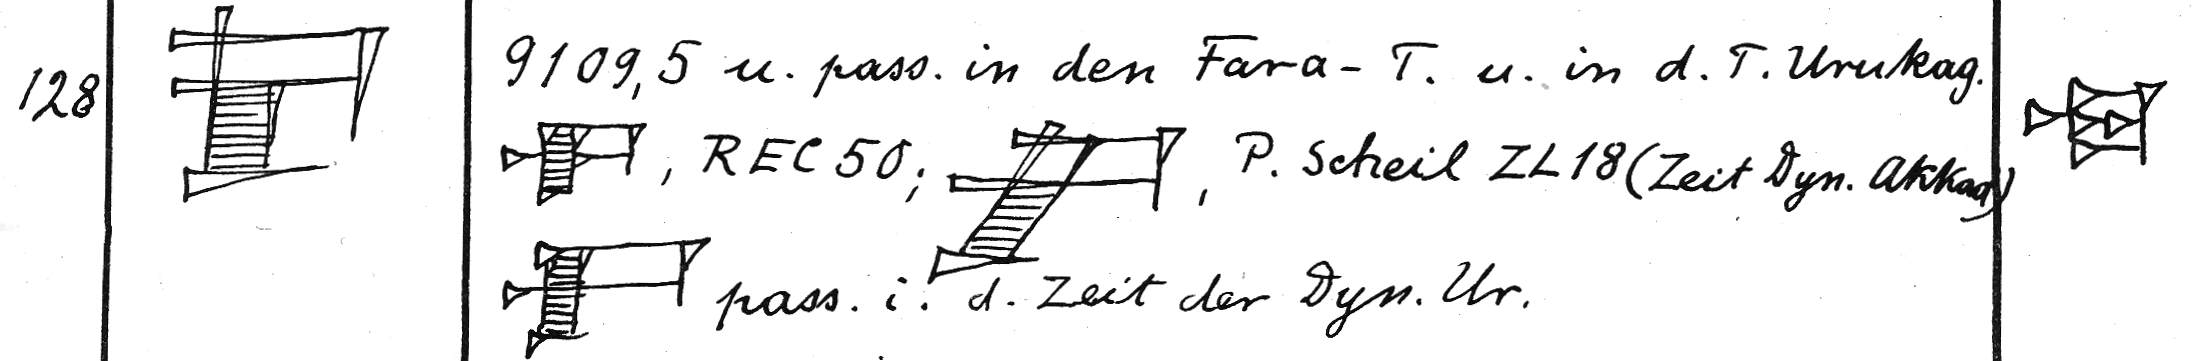 128
9109,5 u. pass. in den Fara-T. u. in d. T. Urukag.
, REC 50; , P. Scheil ZL 18 (Zeit Dyn. Akkad)
pass. i. d. Zeit der Dyn. Ur.